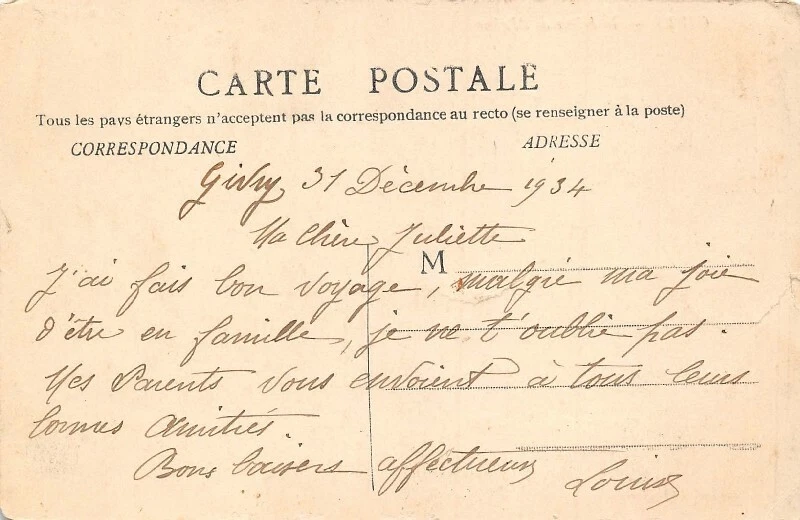 CARTE POSTALE
Tous les pays étrangers n'acceptent pas la correspondance au recto (se renseigner à la poste)
CORRESPONDANCE ADRESSE
Givry 31 Décembre 1934
Ma Chère Juliette
M
J'ai fais bon voyage, malgré ma joie
d'être en famille, je ne t'oublie pas.
Mes Parents vous envoient à tous leurs
bonnes amitiés.
Bons baisers affectueux
Louise